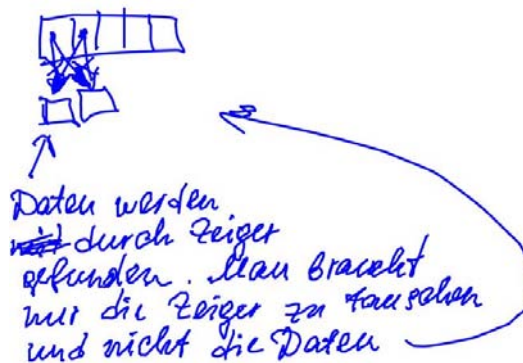 Daten werden
durch Zeiger
gefunden. Man braucht
nur die Zeiger zu tauschen
und nicht die Daten